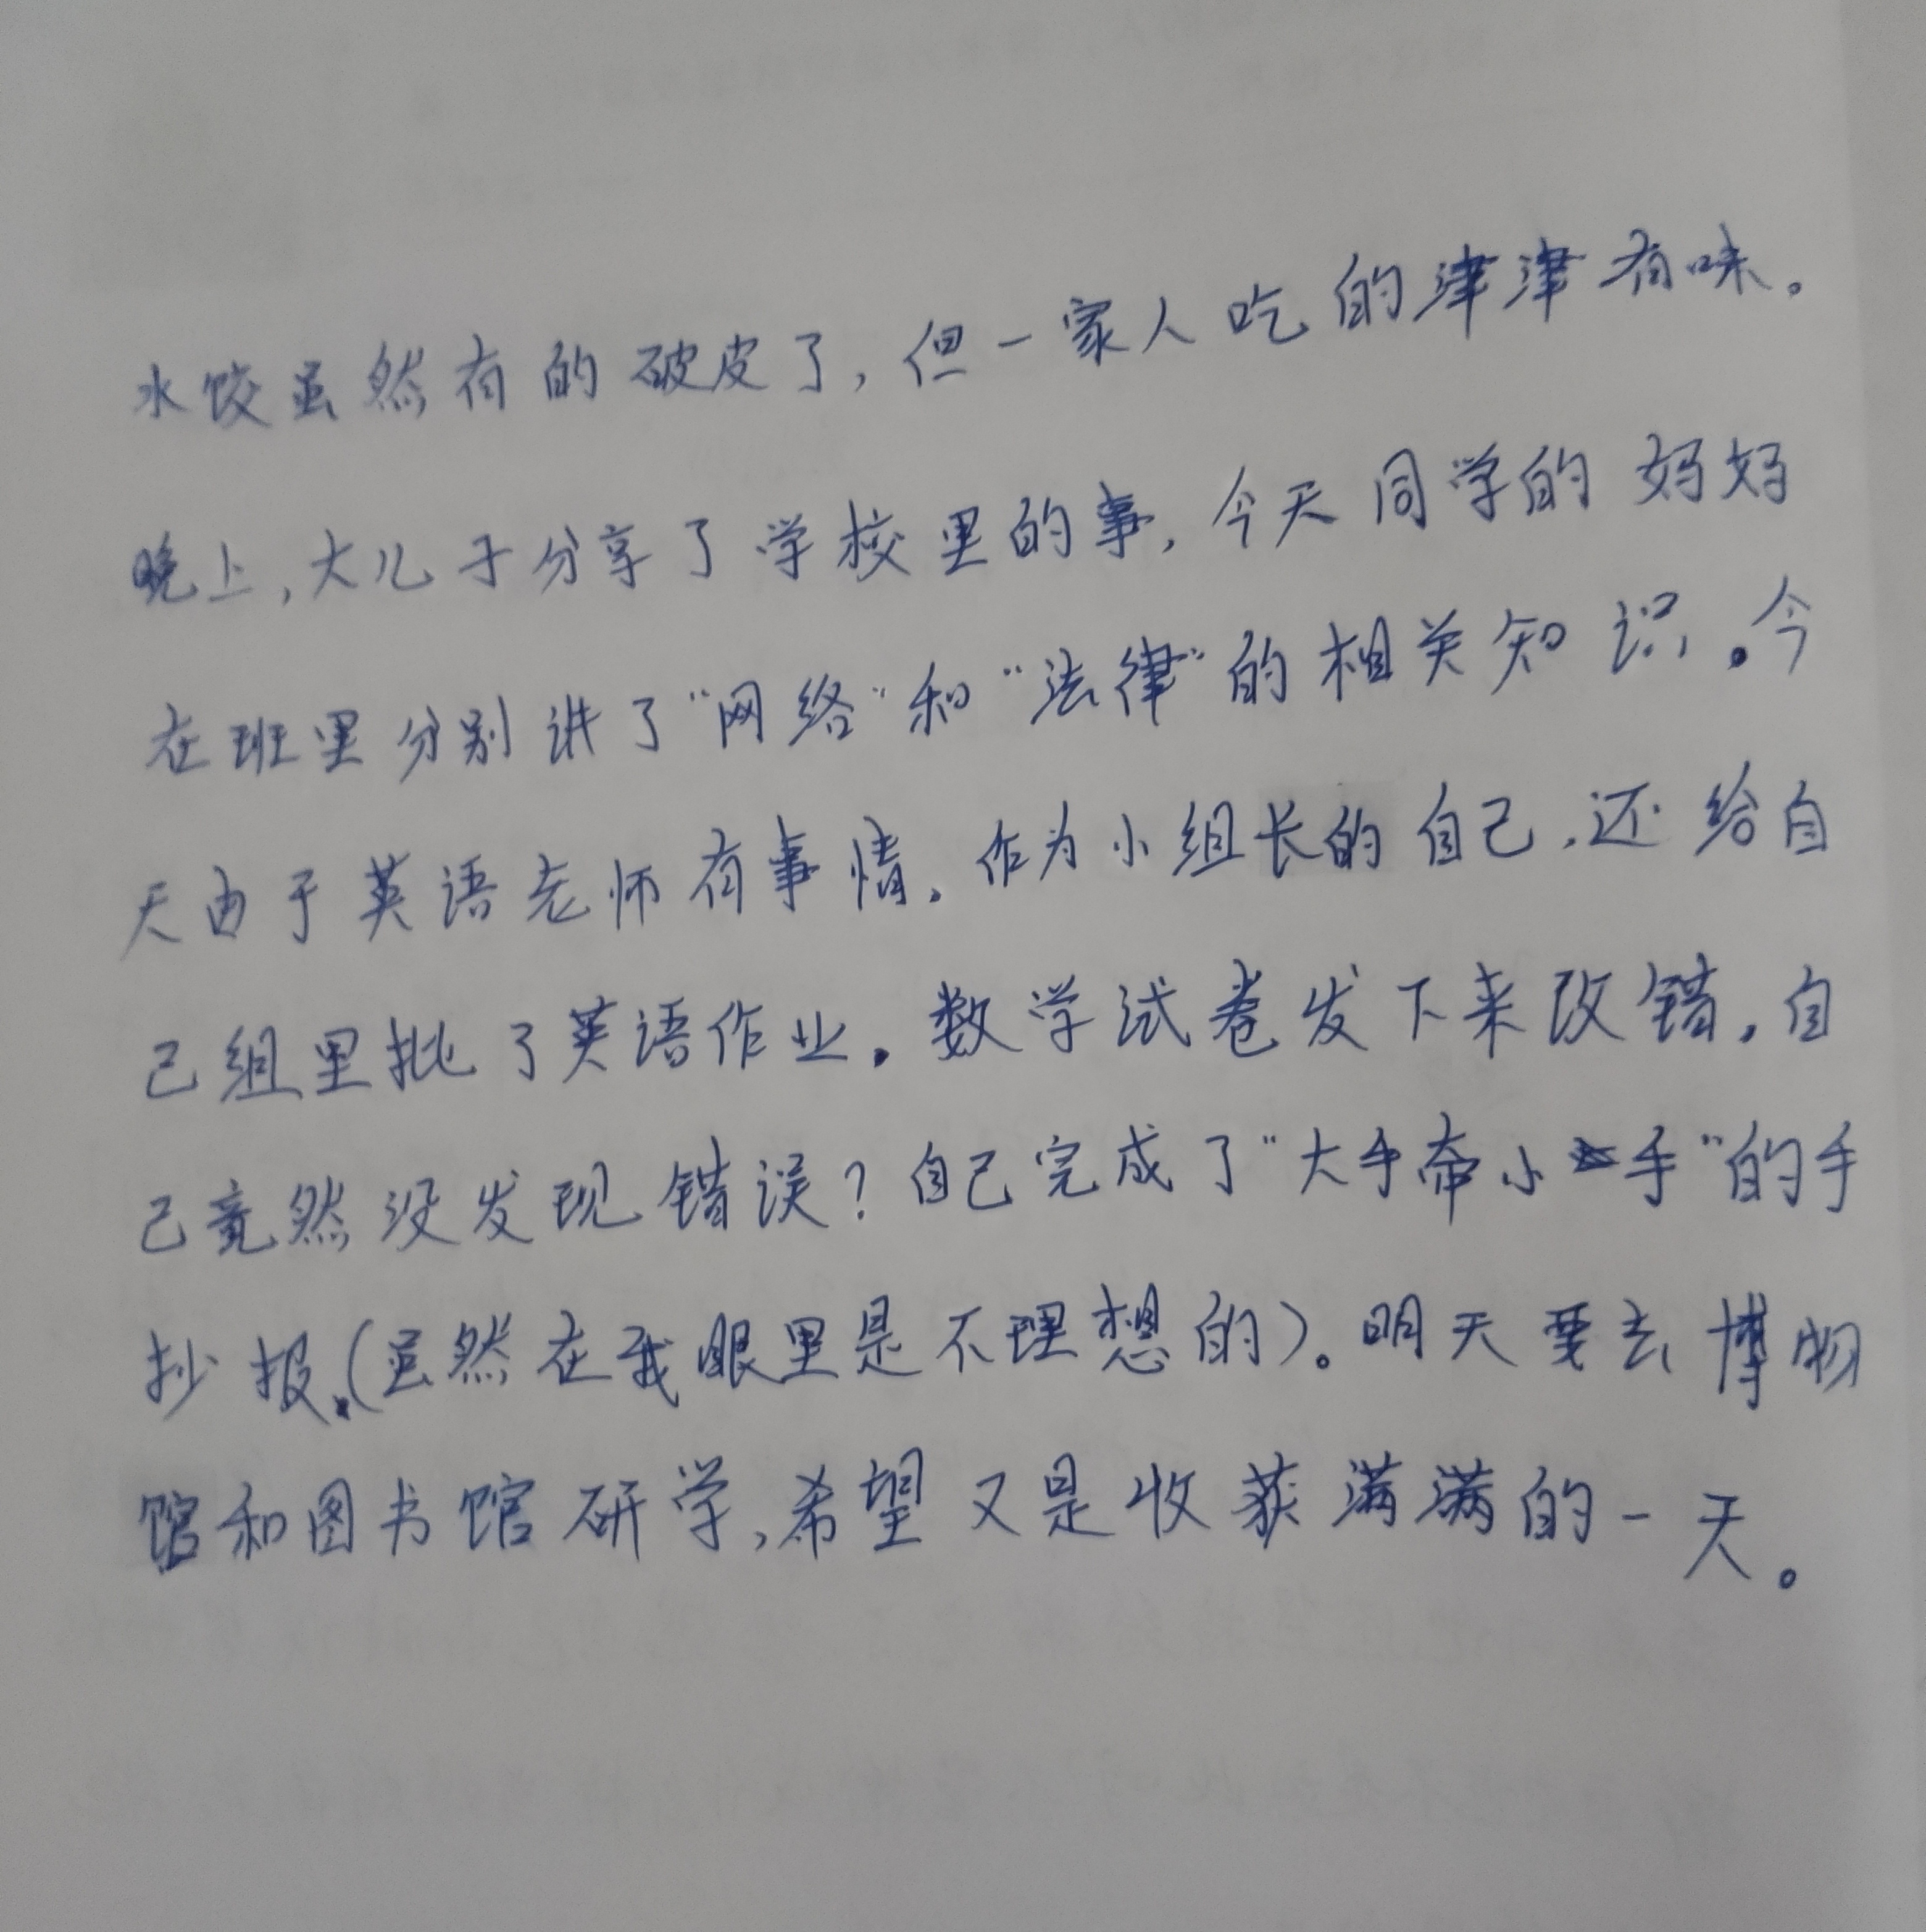 水饺虽然有的破皮了,但一家人吃的津津有味。
晚上,大儿子分享了学校里的事,今天同学的妈妈
在班里分别讲了"网络"和"法律"的相关知识。今
天由于英语老师有事情,作为小组长的自己,还给自
己组里批了英语作业。数学试卷发下来改错,自
己竟然没发现错误?自己完成了"大手牵小手"的手
抄报.(虽然在我眼里是不理想的)。明天要去博物
馆和图书馆研学,希望又是收获满满的一天。